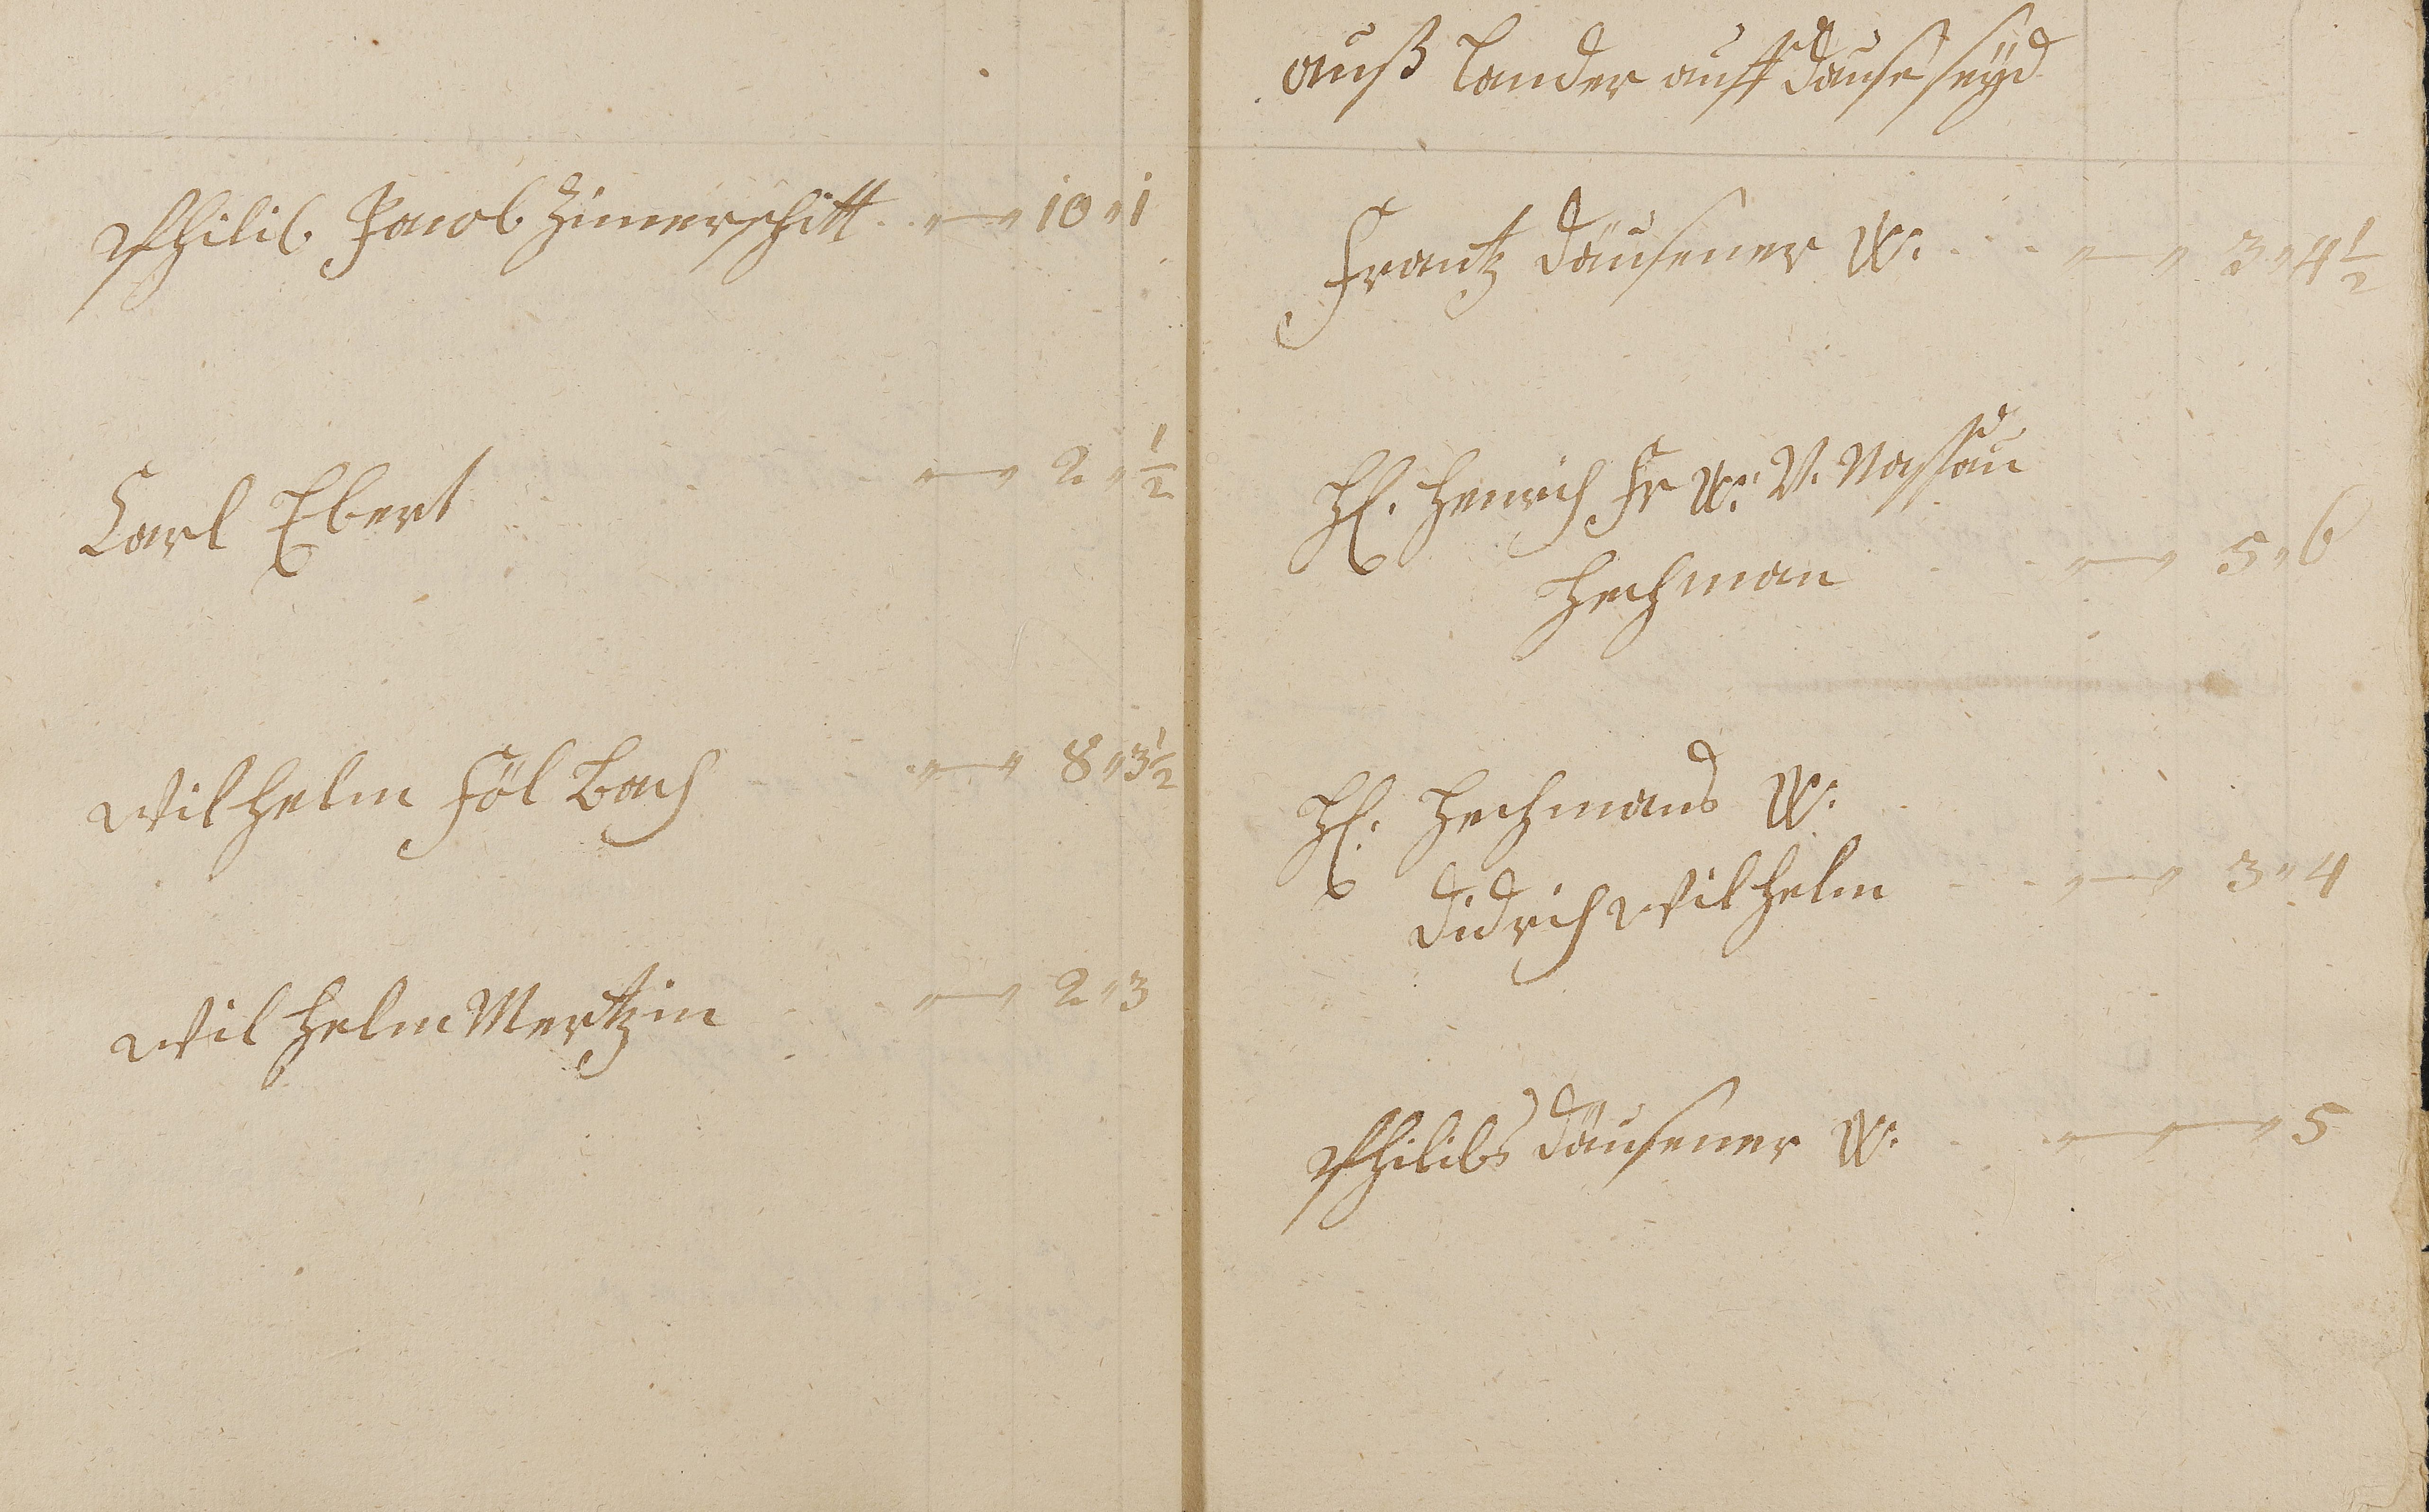 Philib Jacob Zimerschitt .. — " 10 " 1
Carl Ebert " — " 2 " 1/2
Wilhelm Föl Bach " — " 8 " 3 1/2
Wilhelm Mertzin " — " 2 " 3
auß Lander auff dause seyd
Frantz Dausener W: " — " 3 " 4 1/2
H. Henrich Fr W: V. Nassau
Hechman " — " 5 " 6
H. Hechmans W:
Didrich Wilhelm " — " 3 " 4
Philibs Dausener W: " — " — " 5